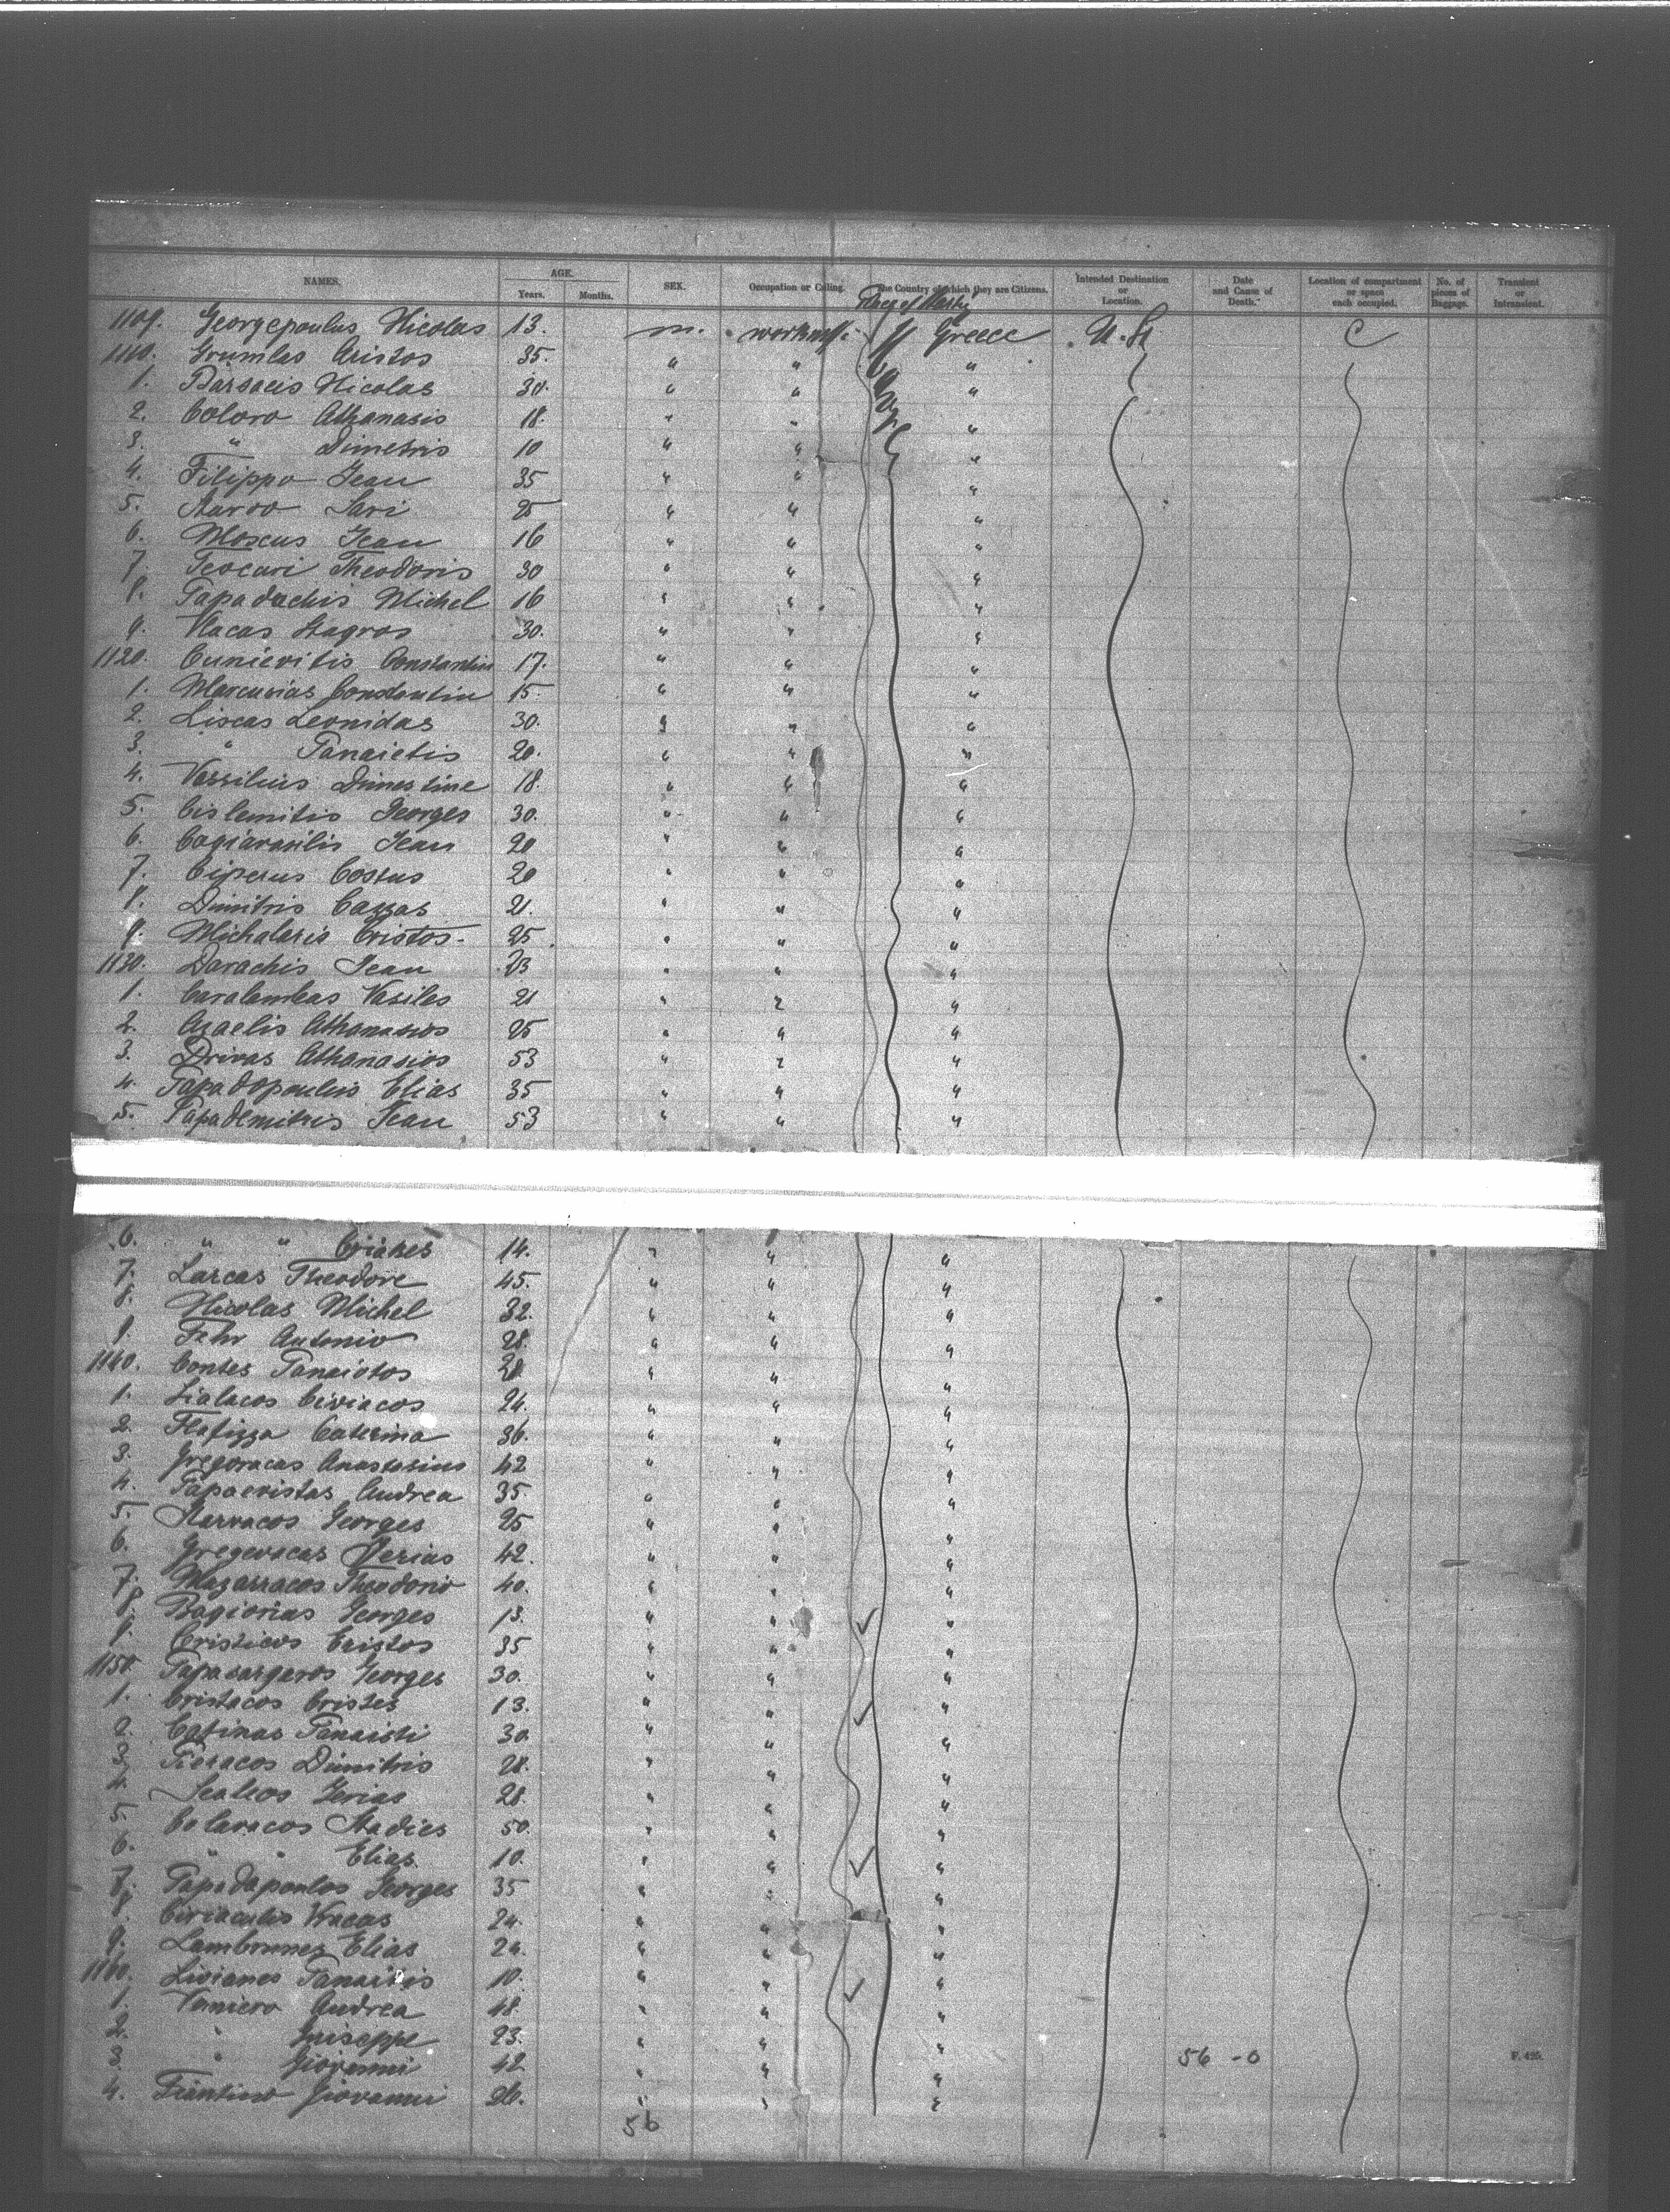 NAMES. AGE. Years. Months. SEX. Occupation or Calling. The Country of which they are Citizens. Intended Destination or Location. Date and Cause of Death. Location of compartment or space each occupied. No. of pieces of Baggage. Transient or Intransient.
1109. Georgepoulus Nicolas 13. m. Greece U.St. C
1110. Grumlas Aristos 35. " " "
1. Barsacis Nicolas 30. " " "
2. Coloro Athanasis 18. " " "
3. " Dimetris 10 " " "
4. Filippo Jean 35 " " "
5. Stavro Sari 25 " " "
6. Moscus Jean 16 " " "
7. Teocari Theodoris 30 " " "
8. Papadachis Michel 16 " " "
9. Vlacas Stagros 30. " " "
1120. Cunievitis Constantin 17. " " "
1. Marcusias Constantin 15. " " "
2. Liscas Leonidas 30. " " "
3. " Panaietis 20. " " "
4. Vassilius 18. " " "
5. Cislemitis Georges 30. " " "
6. Cogiavasilis Jean 20 " " "
7. Ciperus Costus 20 " " "
8. Dimitris Cazzas 21. " " "
9. Michalaris Cristos. 25. " " "
1130. Darachis Jean 23 " " "
1. Caralambas Vasiles 21 " " "
2. Azaelis Athanasios 25 " " "
3. Drivas Athanasios 53 " " "
4. Papadopoulus Elias 35 " " "
5. Papademitris Jean 53 " " "
6. " " 14. " " "
7. Larcas Theodore 45. " " "
8. Nicolas Michel 32. " " "
9. Fehr Antonio 28. " " "
1140. Contes Panaiotos 28 " " "
1. Lialacos Ciriacos 24. " " "
2. Flafizza Caterina 36. " " "
3. Gregoracas Anastasius 42 " " "
4. Papaeristas Andrea 35. " " "
5. Stavracos Georges 25 " " "
6. Gregoracas 42. " " "
7. Mazarracos Theodorio 40. " " "
8. Bagiorias Georges 13. " " "
9. Cristicos Cristos 35 " " "
1150. Papasargaros Georges 30. " " "
1. Cristacos Cristes 13. " " "
2. Cafinas Panaisti 30. " " "
3. Pieracos Dimitris 28. " " "
4. Scalcos Gerias 28. " " "
5. Colaracos Stadies 50. " " "
6. " " Elias. 10. " " "
7. Papadapoulos Georges 35 " " "
8. Ciriaculis Vracas 24. " " "
9. Lambrunes Elias 24. " " "
1160. Livianes Panaitis 10. " " "
1. Vaniero Andrea 48. " " "
2. " Guiseppe 23. " " "
3. " Giovanni 42 " " " 56 - 0 F. 425.
4. Fiantino Giovanni 26. " " "
56